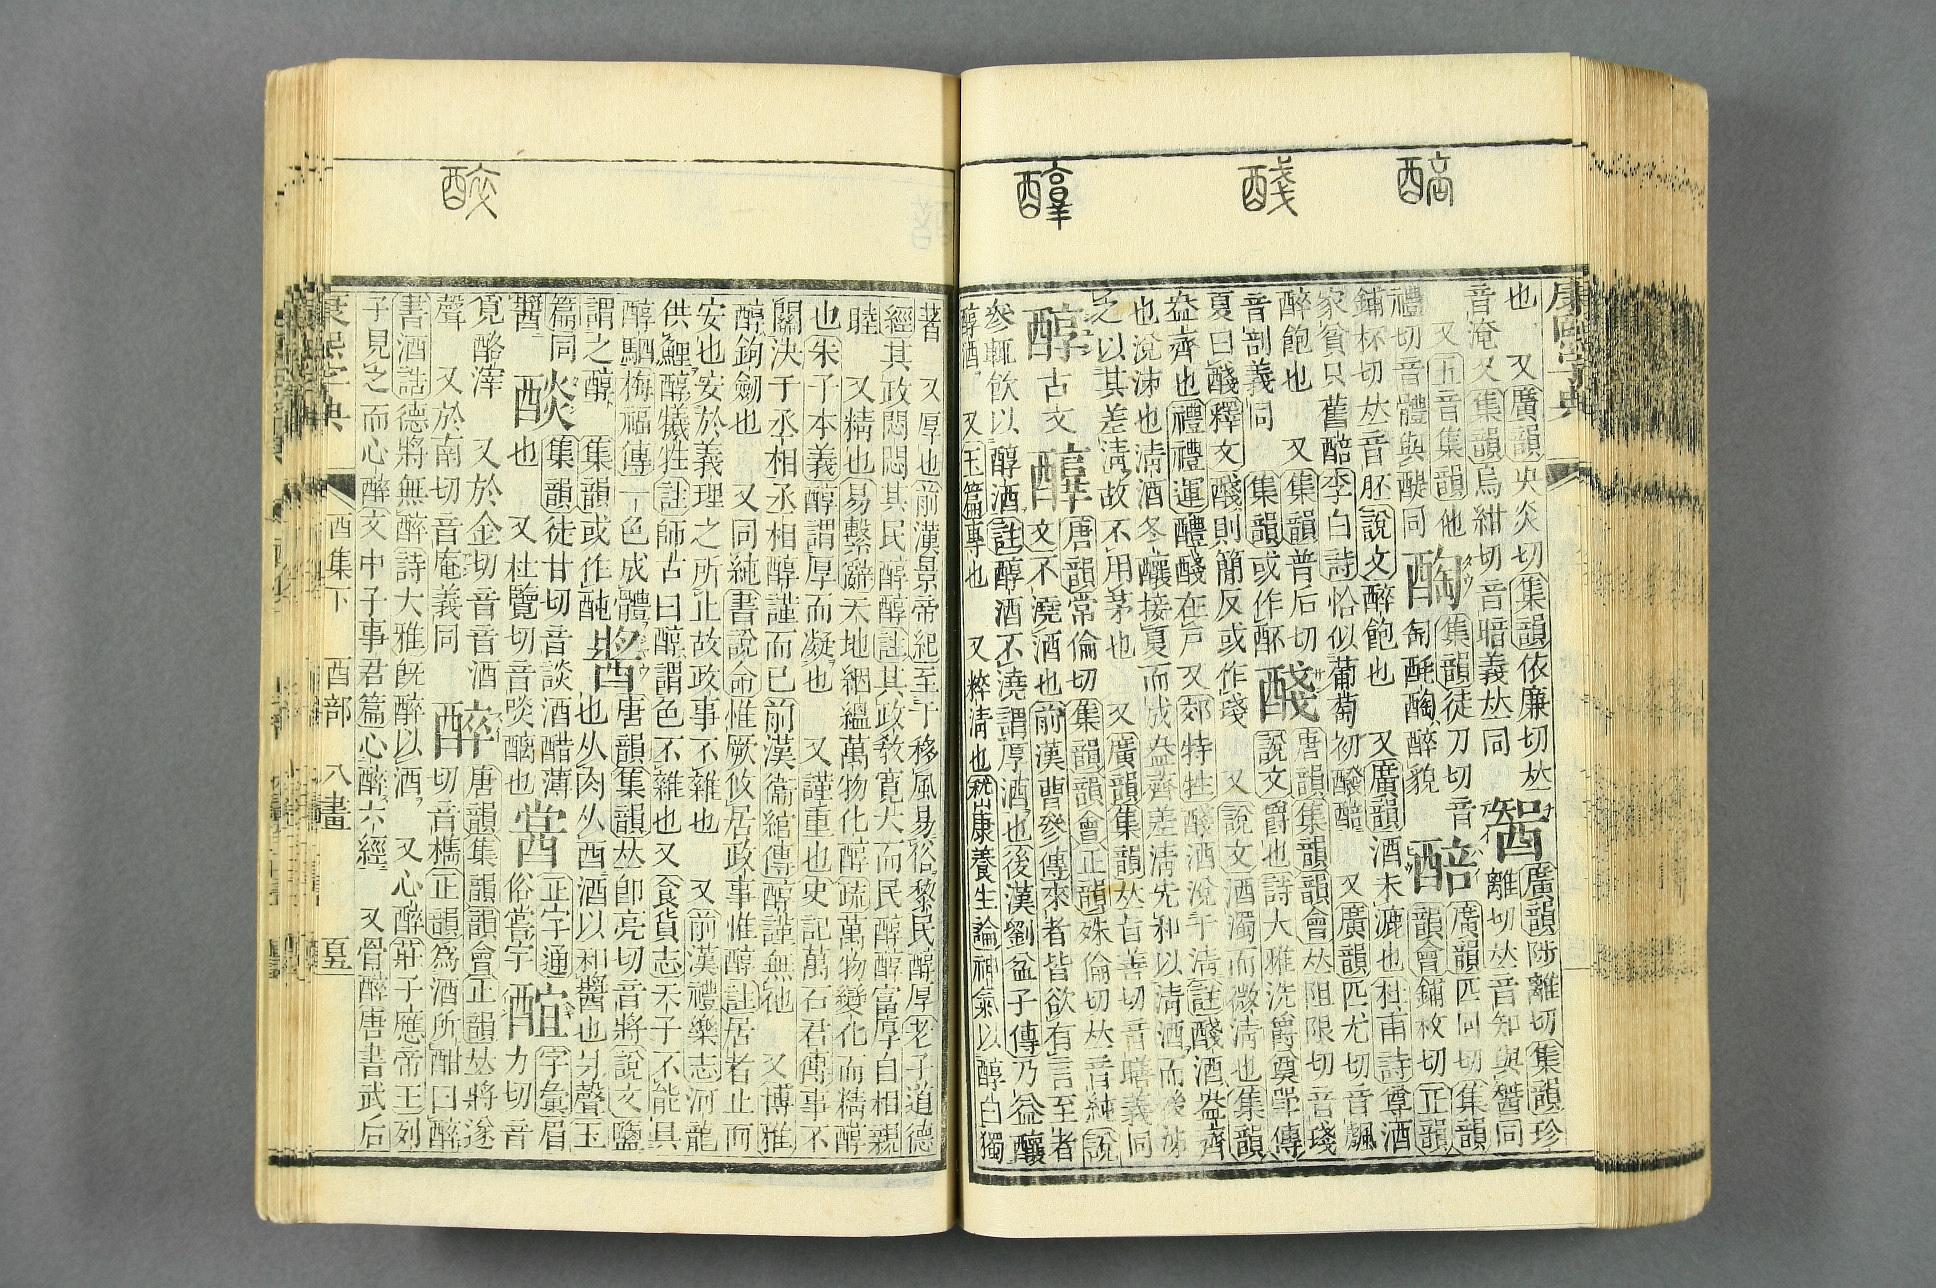 康熙字典
也　又廣韻央炎切集韻依廉切𠀤　廣韻陟離切集韻珍
音淹又集韻烏紺切音暗義𠀤同　離切𠀤音知與　同
又五音集韻他　集韻徒刀切音　廣韻匹回切集韻
禮切音體與醍同　醄　匋酕醄醉貌　醅　韻會鋪枚切正韻
鋪杯切𠀤音胚說文醉飽也　又廣韻酒未漉也杜甫詩尊酒
家貧只舊醅李白詩恰似葡萄初醱醅　又廣韻匹尤切音飍
醉飽也　又集韻普后切　醆　唐韻集韻韻會𠀤阻限切音琖
音剖義同　集韻或作䣱　說文爵也詩大雅洗爵奠斝傳
夏曰醆釋文醆則簡反或作琖　又說文酒濁而微清也集韻
盎齊也禮禮運醴醆在戸又郊特牲醆酒涚于清註醆酒盎齊
也涚沛也清酒冬釀接夏而成盎齊差清先和以清酒而後泲
之以其差清故不用茅也　又廣韻集韻𠀤旨善切音　義同
醇　古文　醇　唐韻常倫切集韻韻會正韻殊倫切𠀤音純說
文不澆酒也前漢曹參傳來者皆欲有言至者
參輒飲以醇酒註醇酒不澆謂厚酒也後漢劉盆子傳乃益釀
醇酒　又玉篇專也　又粹清也嵇康養生論神氣以醇白獨
著　又厚也前漢景帝紀至于移風易俗黎民醇厚老子道德
經其政悶悶其民醇醇註其政敎寬大而民醇醇富厚自相親
睦　又精也易繫辭天地絪縕萬物化醇疏萬物變化而精醇
也朱子本義醇謂厚而凝也　又謹重也史記萬石君傳事不
關決于丞相丞相醇謹而已前漢衞綰傳醇謹無他　又博雅
醇鉤劒也　又同純書說命惟厥攸居政事惟醇註居者止而
安也安於義理之所止故政事不雜也　又前漢禮樂志河龍
供鯉醇犧牲註師古曰醇謂色不雜也又食貨志天子不能具
醇駟梅福傳一色成體　醬　唐韻集韻𠀤卽亮切音將說文鹽
謂之醇　集韻或作　也从肉从酉酒以和醬也爿聲玉
篇同　醈　集韻徒甘切音談酒醋薄　正字通　字彙眉
醬　也　又杜覽切音啖醨也　俗嘗字　力切音
覓酪滓　又於金切音音酒　醉　唐韻集韻韻會正韻𠀤將遂
聲　又於南切音庵義同　切音檇正韻爲酒所酣曰醉
書酒誥德將無醉詩大雅旣醉以酒　又心醉莊子應帝王列
子見之而心醉文中子事君篇心醉六經　又骨醉唐書武后
康熙字典　酉集下　酉部　八畫